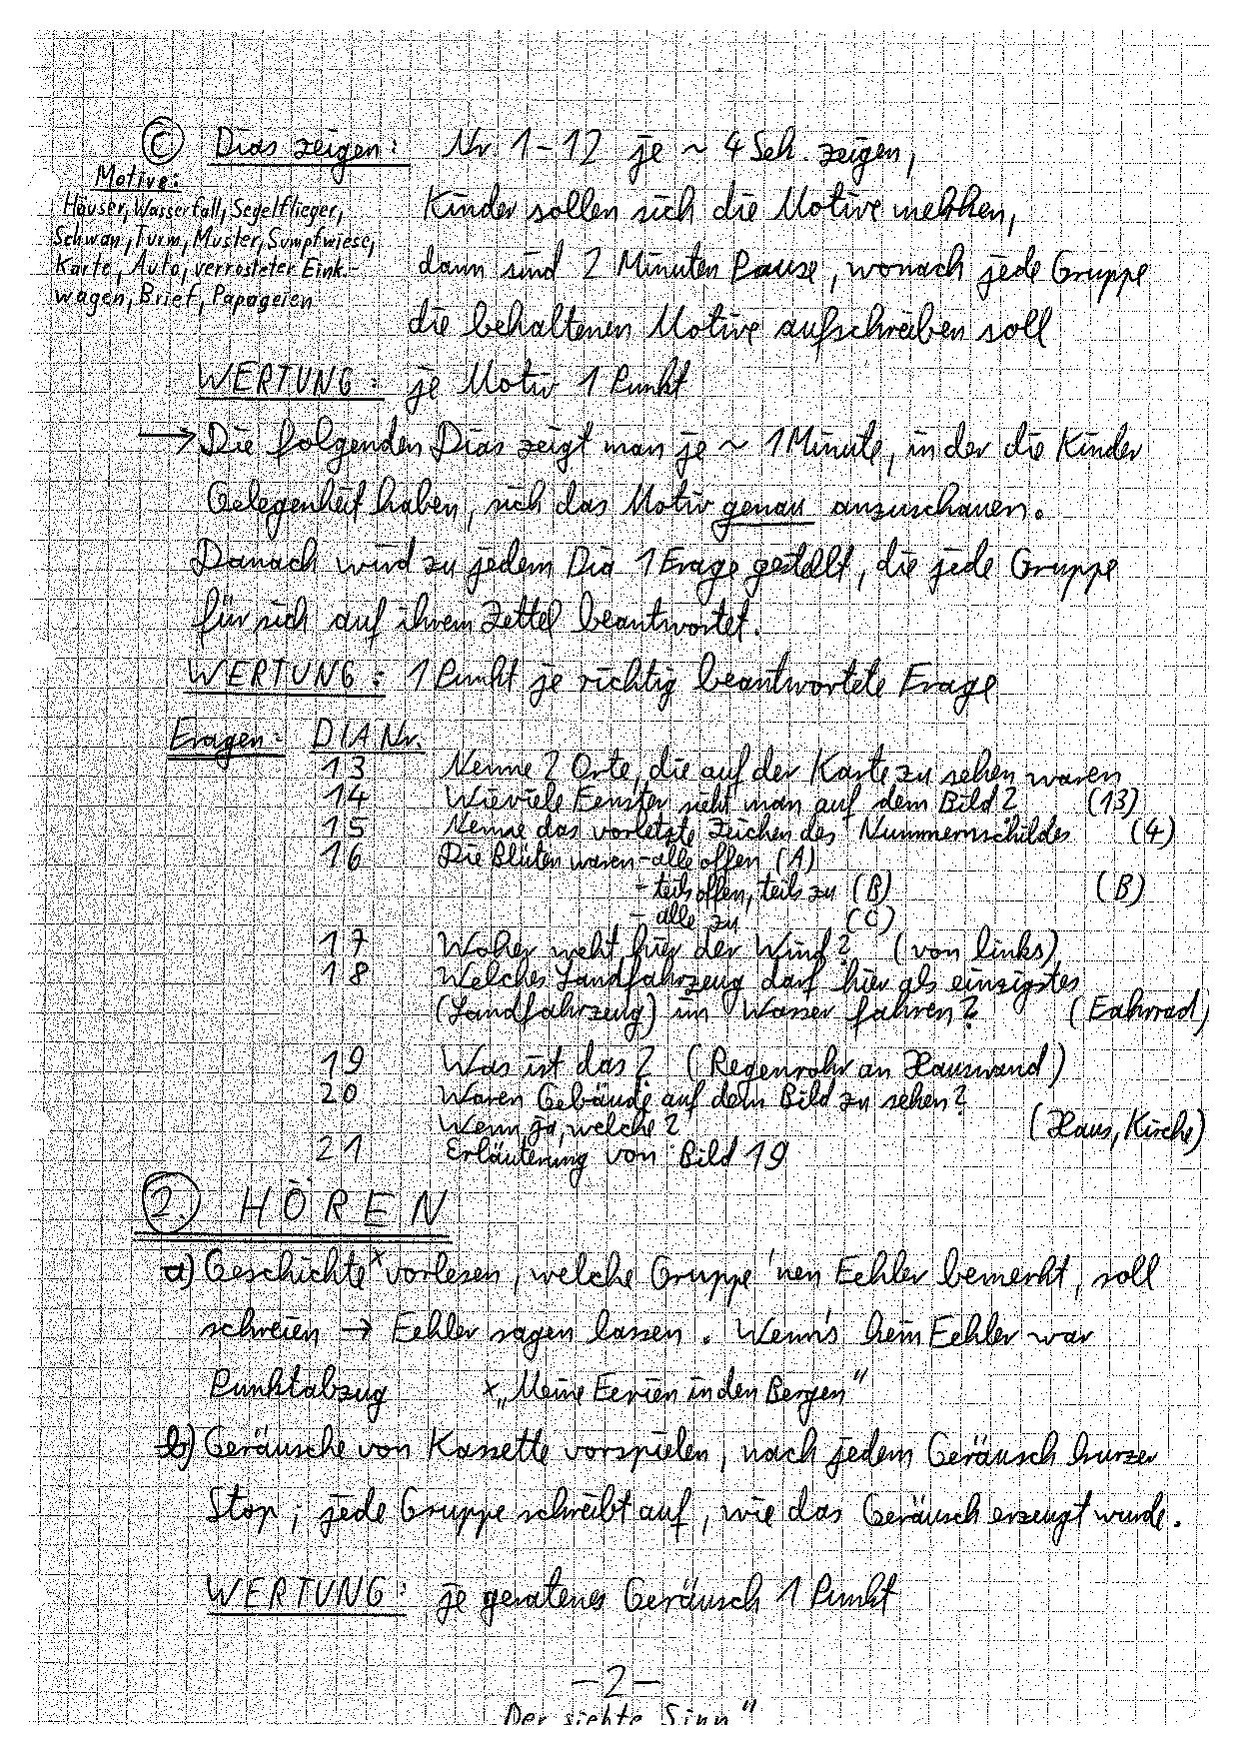 Ⓒ Dias zeigen: Nr. 1-12 je ~ 4 Sek. zeigen,
Motive:
Häuser, Wasserfall, Segelflieger,
Schwan, Turm, Muster, Sumpfwiese,
Karte, Auto, verrosteter Eink.-
wagen, Brief, Papageien
Kinder sollen sich die Motive merken,
dann sind 2 Minuten Pause, wonach jede Gruppe
die behaltenen Motive aufschreiben soll
WERTUNG: je Motiv 1 Punkt
→ Die folgenden Dias zeigt man je ~ 1 Minute, in der die Kinder
Gelegenheit haben, sich das Motiv genau anzuschauen.
Danach wird zu jedem Dia 1 Frage gestellt, die jede Gruppe
für sich auf ihrem Zettel beantwortet.
WERTUNG: 1 Punkt je richtig beantwortete Frage
Fragen: DIA Nr.
13 Nenne 2 Orte, die auf der Karte zu sehen waren
14 Wieviele Fenster sieht man auf dem Bild? (13)
15 Nenne das vorletzte Zeichen des Nummernschildes (4)
16 Die Blüten waren - alle offen (A)
- teils offen, teils zu (B) (B)
- alle zu (C)
17 Woher weht hier der Wind? (von links)
18 Welches Landfahrzeug darf hier als einzigstes
(Landfahrzeug) im Wasser fahren? (Fahrrad)
19 Was ist das? (Regenrohr an Hauswand)
20 Waren Gebäude auf dem Bild zu sehen?
Wenn ja, welche? (Haus, Kirche)
21 Erläuterung von Bild 19
2. HÖREN
a) Geschichte x vorlesen, welche Gruppe 'nen Fehler bemerkt, soll
schreien → Fehler sagen lassen. Wenn's kein Fehler war
Punktabzug x „Meine Ferien in den Bergen"
b) Geräusche von Kassette vorspielen, nach jedem Geräusch kurzer
Stop; jede Gruppe schreibt auf, wie das Geräusch erzeugt wurde.
WERTUNG: je geratenes Geräusch 1 Punkt
-2-
„Der siebte Sinn"